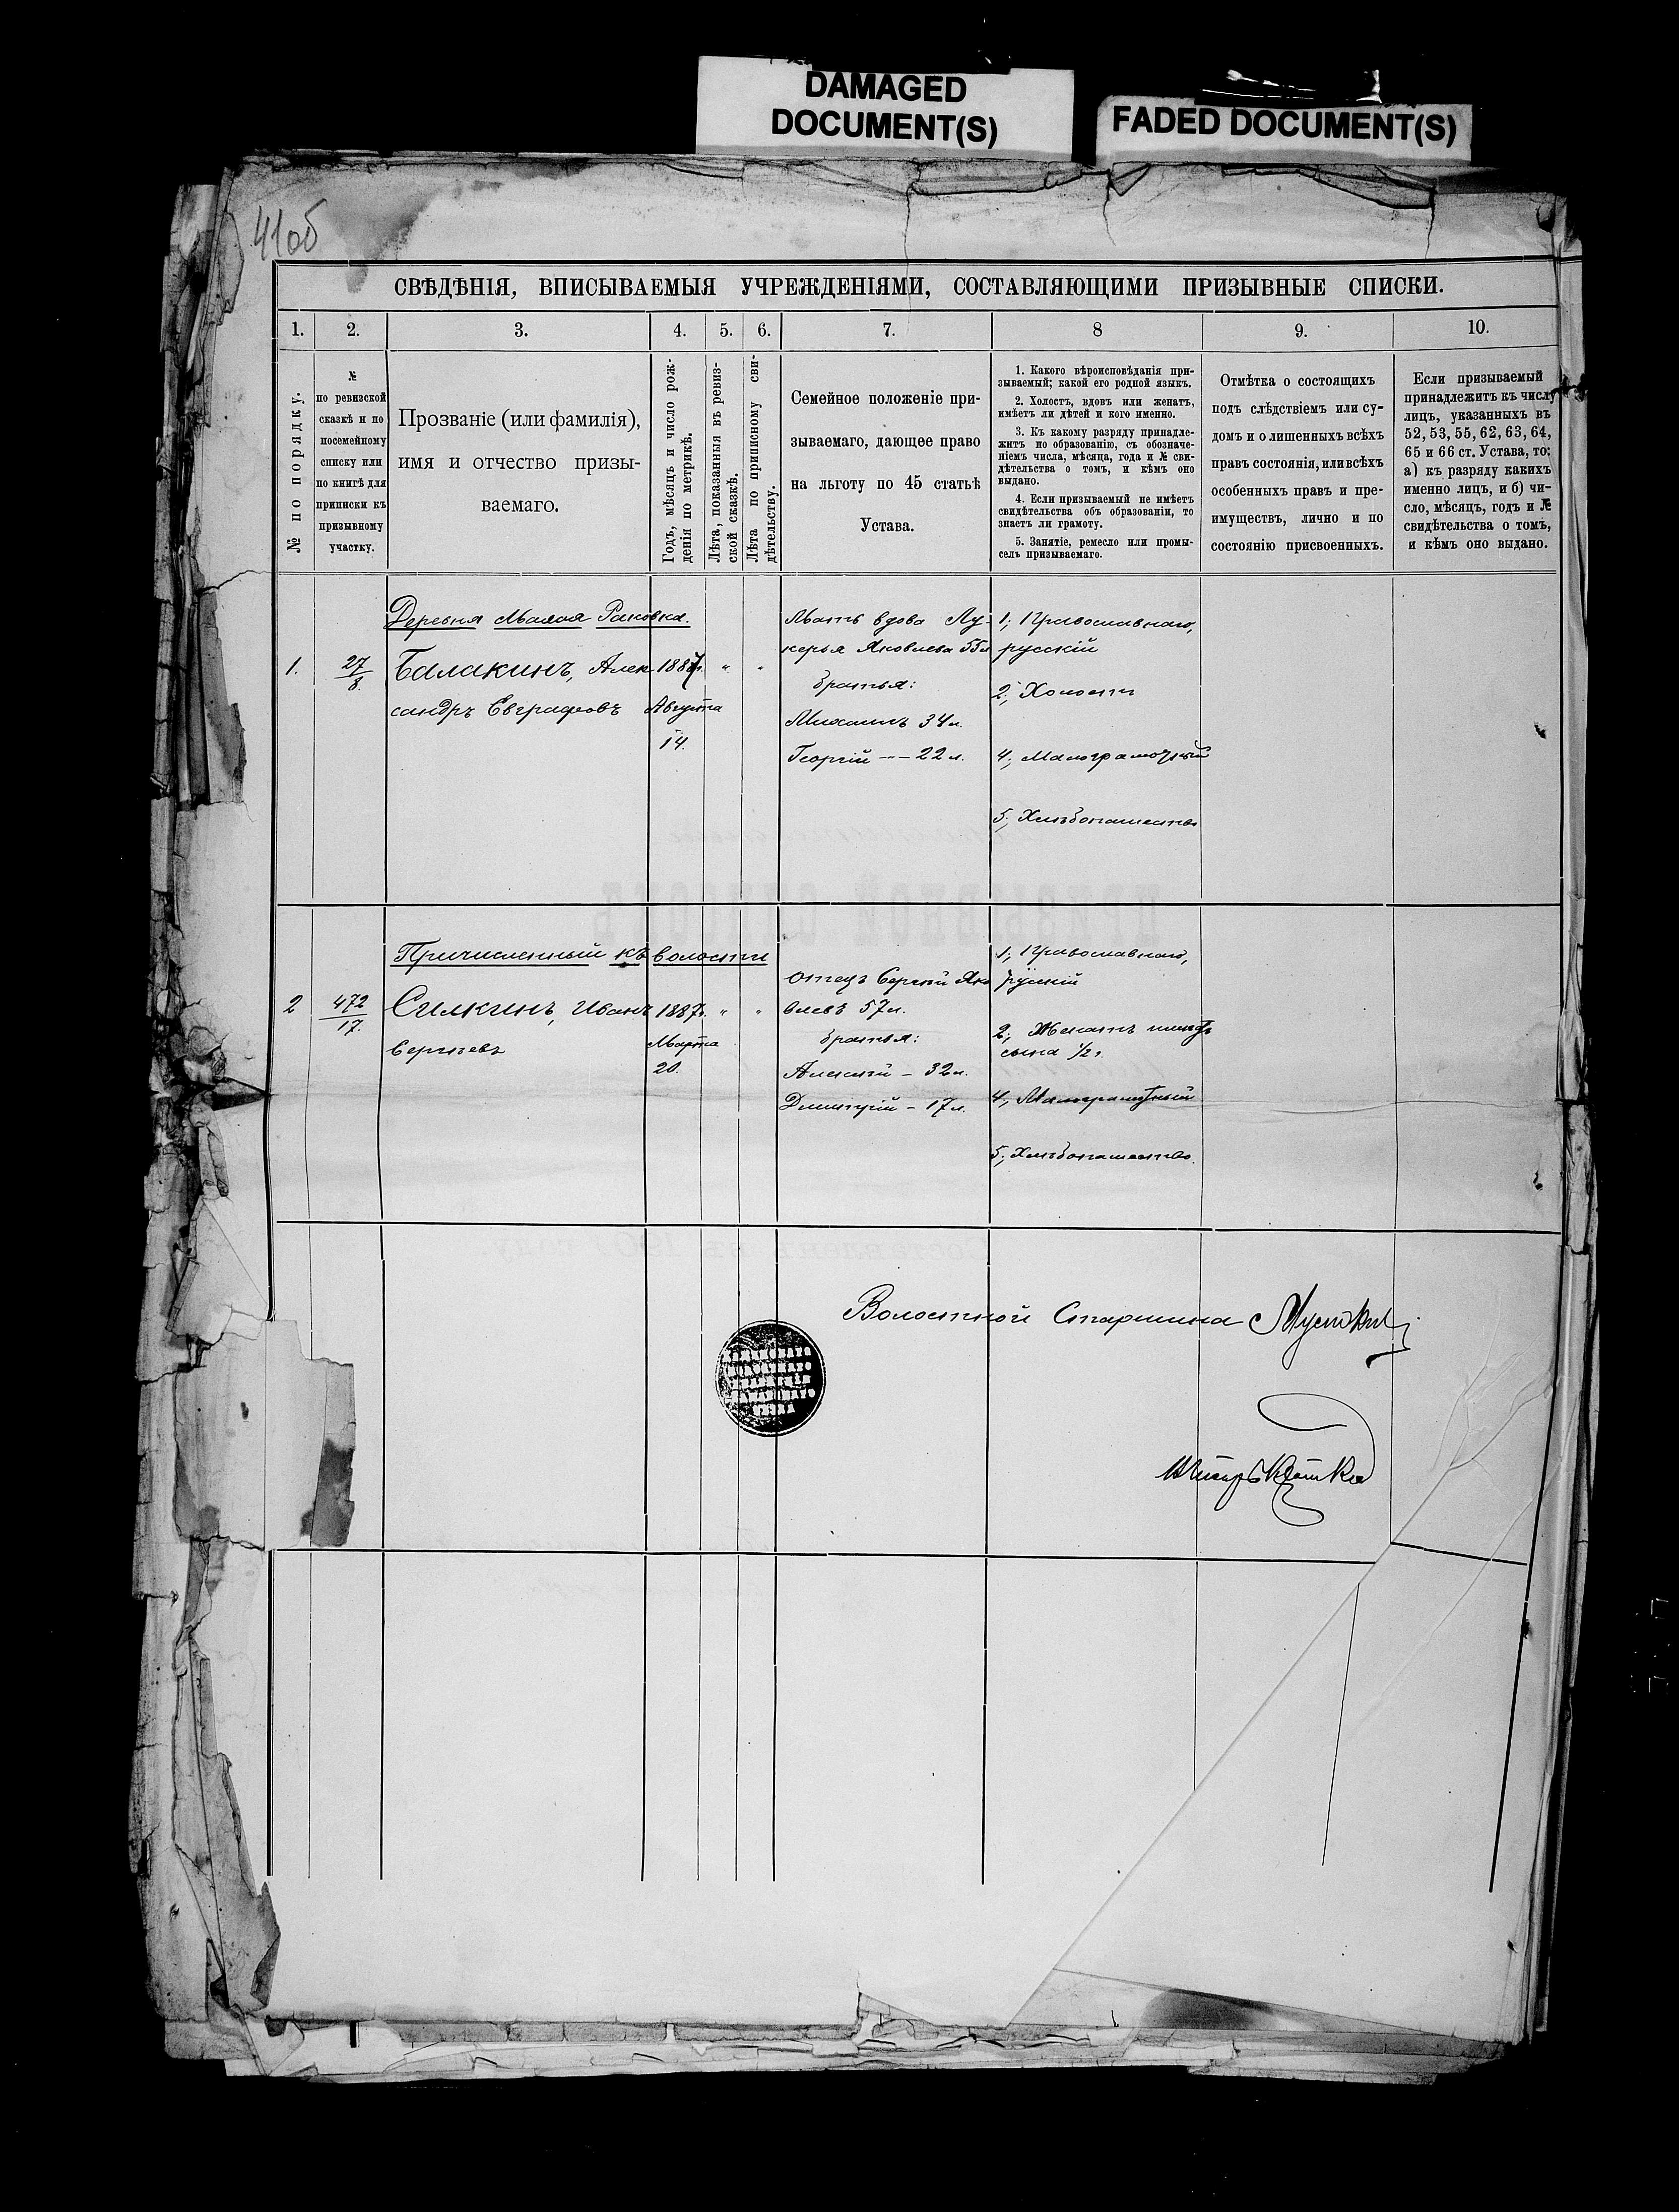 DAMAGED
DOCUMENT(S)
FADED DOCUMENT(S)
41об
СВѢДѢНІЯ, ВПИСЫВАЕМЫЯ УЧРЕЖДЕНІЯМИ, СОСТАВЛЯЮЩИМИ ПРИЗЫВНЫЕ СПИСКИ.
1. 2. 3. 4. 5. 6. 7. 8 9. 10.
№ по порядку.
№
по ревизской
сказкѣ и по
посемейному
списку или
по книгѣ для
приписки къ
призывному
участку.
Прозваніе (или фамилія),
имя и отчество призы-
ваемаго.
Годъ, мѣсяцъ и число рож-
денія по метрикѣ.
Лѣта, показанныя въ ревиз-
ской сказкѣ.
Лѣта по приписному сви-
дѣтельству.
Семейное положеніе при-
зываемаго, дающее право
на льготу по 45 статьѣ
Устава.
1. Какого вѣроисповѣданія при-
зываемый; какой его родной языкъ.
2. Холостъ, вдовъ или женатъ,
имѣетъ ли дѣтей и кого именно.
3. Къ какому разряду принадле-
житъ по образованію, съ обозначе-
ніемъ числа, мѣсяца, года и № сви-
дѣтельства о томъ, и кѣмъ оно
выдано.
4. Если призываемый не имѣетъ
свидѣтельства объ образованіи, то
знаетъ ли грамоту.
5. Занятіе, ремесло или промы-
селъ призываемаго.
Отмѣтка о состоящихъ
подъ слѣдствіемъ или су-
домъ и о лишенныхъ всѣхъ
правъ состоянія, или всѣхъ
особенныхъ правъ и пре-
имуществъ, лично и по
состоянію присвоенныхъ.
Если призываемый
принадлежитъ къ числу
лицъ, указанныхъ въ
52, 53, 55, 62, 63, 64,
65 и 66 ст. Устава, то:
а) къ разряду какихъ
именно лицъ, и б) чи-
сло, мѣсяцъ, годъ и №
свидѣтельства о томъ,
и кѣмъ оно выдано.
Деревня Малая Раковка.
1.
27
8.
Балакинъ, Алек
сандръ Евграфовъ
1887г.
Августа
14.
" "
Мать вдова Лу-
керья Яковлева 55л
братья:
Михаилъ 34л.
Георгій — 22 л.
1; Православнаго,
русскій
2; Холостъ
4; Малограмотный
5; Хлѣбопашество
Причисленный къ волости
2
472
17.
Силкинъ, Иванъ
Сергѣевъ
1887г.
Марта
20.
" "
Отецъ Сергѣй Яко
влевъ 57л.
братья:
Алексѣй – 32л.
Дмитрій – 17л.
1; Православнаго,
русскій
2; Женатъ имѣетъ
сына ½ г.
4; Малограмотный
5; Хлѣбопашество.
Волостной Старшина